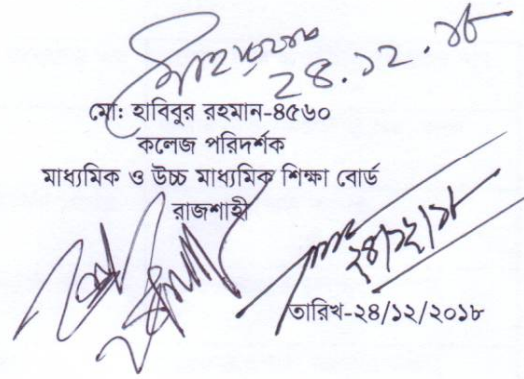 ২৪.১২.১৮
মো: হাবিবুর রহমান-৪৫৬০
কলেজ পরিদর্শক
মাধ্যমিক ও উচ্চ মাধ্যমিক শিক্ষা বোর্ড
রাজশাহী
২৪/১২/১৮
তারিখ-২৪/১২/২০১৮